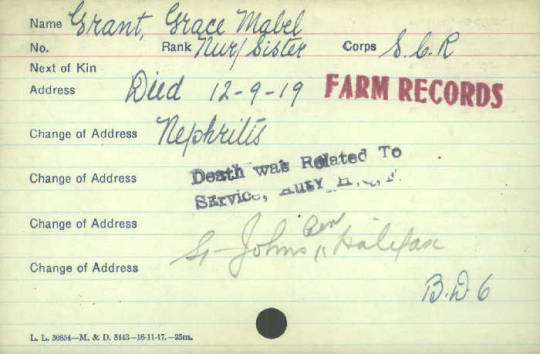 Name Grant, Grace Mabel
No. Rank Nur/Sister Corps S.C.R
Next of Kin
Address Died 12-9-19 FARM RECORDS
Change of Address Nephritis
Death was Related To
Change of Address
Service,
Change of Address St-Johns Halifax
Change of Address
B.D.6
L. L. 30854—M. & D. 8443—16-11-17.—25m.